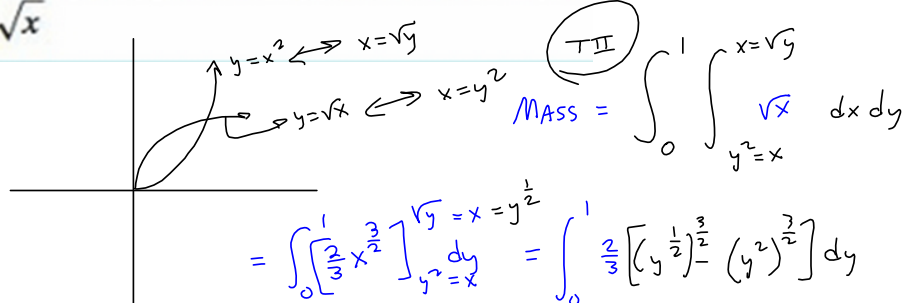 √x
y=x² ↔ x=√y
y=√x ↔ x=y²
TII
MASS = ∫₀¹ ∫_{y²=x}^{x=√y} √x dx dy
= ∫₀¹ [2/3 x^{3/2}]_{y²=x}^{√y=x=y^{1/2}} dy = ∫₀¹ 2/3 [(y^{1/2})^{3/2} − (y²)^{3/2}] dy